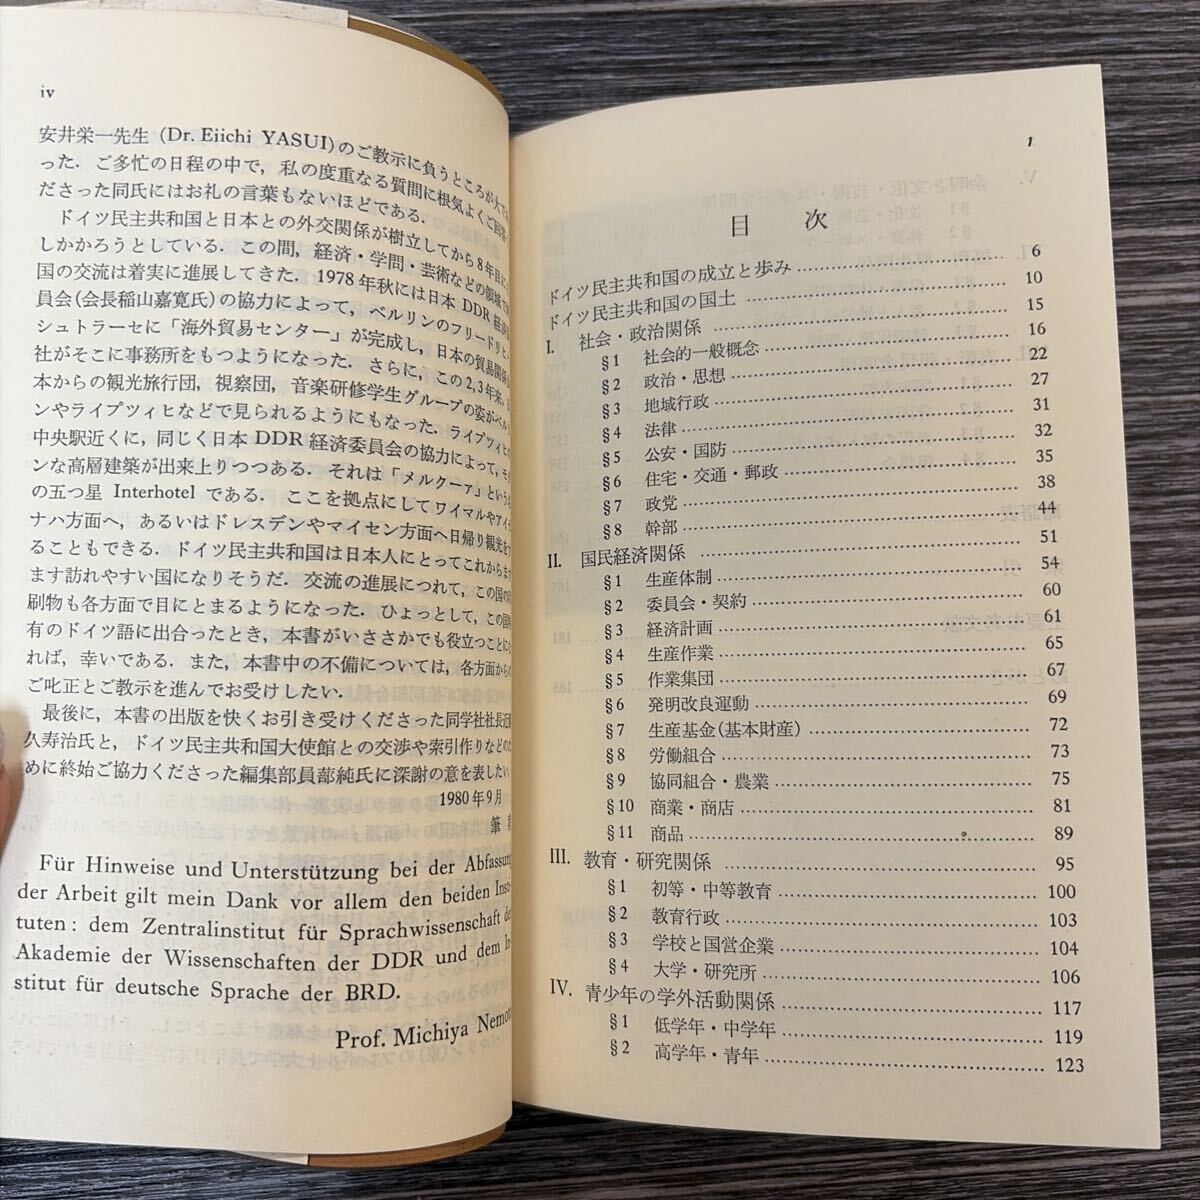 iv
安井栄一先生 (Dr. Eiichi YASUI)のご教示に負うところが大であ
った．ご多忙の日程の中で，私の度重なる質問に根気よくご回答
ださった同氏にはお礼の言葉もないほどである．
ドイツ民主共和国と日本との外交関係が樹立してから8年目に
しかかろうとしている．この間，経済・学問・芸術などの領域で
国の交流は着実に進展してきた．1978年秋には日本DDR経済
員会(会長稲山嘉寛氏)の協力によって，ベルリンのフリードリヒ
シュトラーセに「海外貿易センター」が完成し，日本の貿易関係
社がそこに事務所をもつようになった．さらに，この2,3年来，
本からの観光旅行団，視察団，音楽研修学生グループの姿がベル
ンやライプツィヒなどで見られるようにもなった．ライプツィヒ
中央駅近くに，同じく日本DDR経済委員会の協力によって，モダ
ンな高層建築が出来上りつつある．それは「メルクーア」という
の五つ星 Interhotel である．ここを拠点にしてワイマルやアイゼ
ナハ方面へ，あるいはドレスデンやマイセン方面へ日帰り観光を
ることもできる．ドイツ民主共和国は日本人にとってこれからます
ます訪れやすい国になりそうだ．交流の進展につれて，この国の
刷物も各方面で目にとまるようになった．ひょっとして，この国
有のドイツ語に出合ったとき，本書がいささかでも役立つことにな
れば，幸いである．また，本書中の不備については，各方面からの
ご叱正とご教示を進んでお受けしたい．
最後に，本書の出版を快くお引き受けくださった同学社社長近藤
久寿治氏と，ドイツ民主共和国大使館との交渉や索引作りなどのた
めに終始ご協力くださった編集部員蔀純氏に深謝の意を表したい．
1980年9月
筆
Für Hinweise und Unterstützung bei der Abfassung
der Arbeit gilt mein Dank vor allem den beiden Insti-
tuten: dem Zentralinstitut für Sprachwissenschaft der
Akademie der Wissenschaften der DDR und dem In-
stitut für deutsche Sprache der BRD.
Prof. Michiya Nemoto
1
目 次
ドイツ民主共和国の成立と歩み 6
ドイツ民主共和国の国土 10
I. 社会・政治関係 15
§1 社会的一般概念 16
§2 政治・思想 22
§3 地域行政 27
§4 法律 31
§5 公安・国防 32
§6 住宅・交通・郵政 35
§7 政党 38
§8 幹部 44
II. 国民経済関係 51
§1 生産体制 54
§2 委員会・契約 60
§3 経済計画 61
§4 生産作業 65
§5 作業集団 67
§6 発明改良運動 69
§7 生産基金(基本財産) 72
§8 労働組合 73
§9 協同組合・農業 75
§10 商業・商店 81
§11 商品 89
III. 教育・研究関係 95
§1 初等・中等教育 100
§2 教育行政 103
§3 学校と国営企業 104
§4 大学・研究所 106
IV. 青少年の学外活動関係 117
§1 低学年・中学年 119
§2 高学年・青年 123